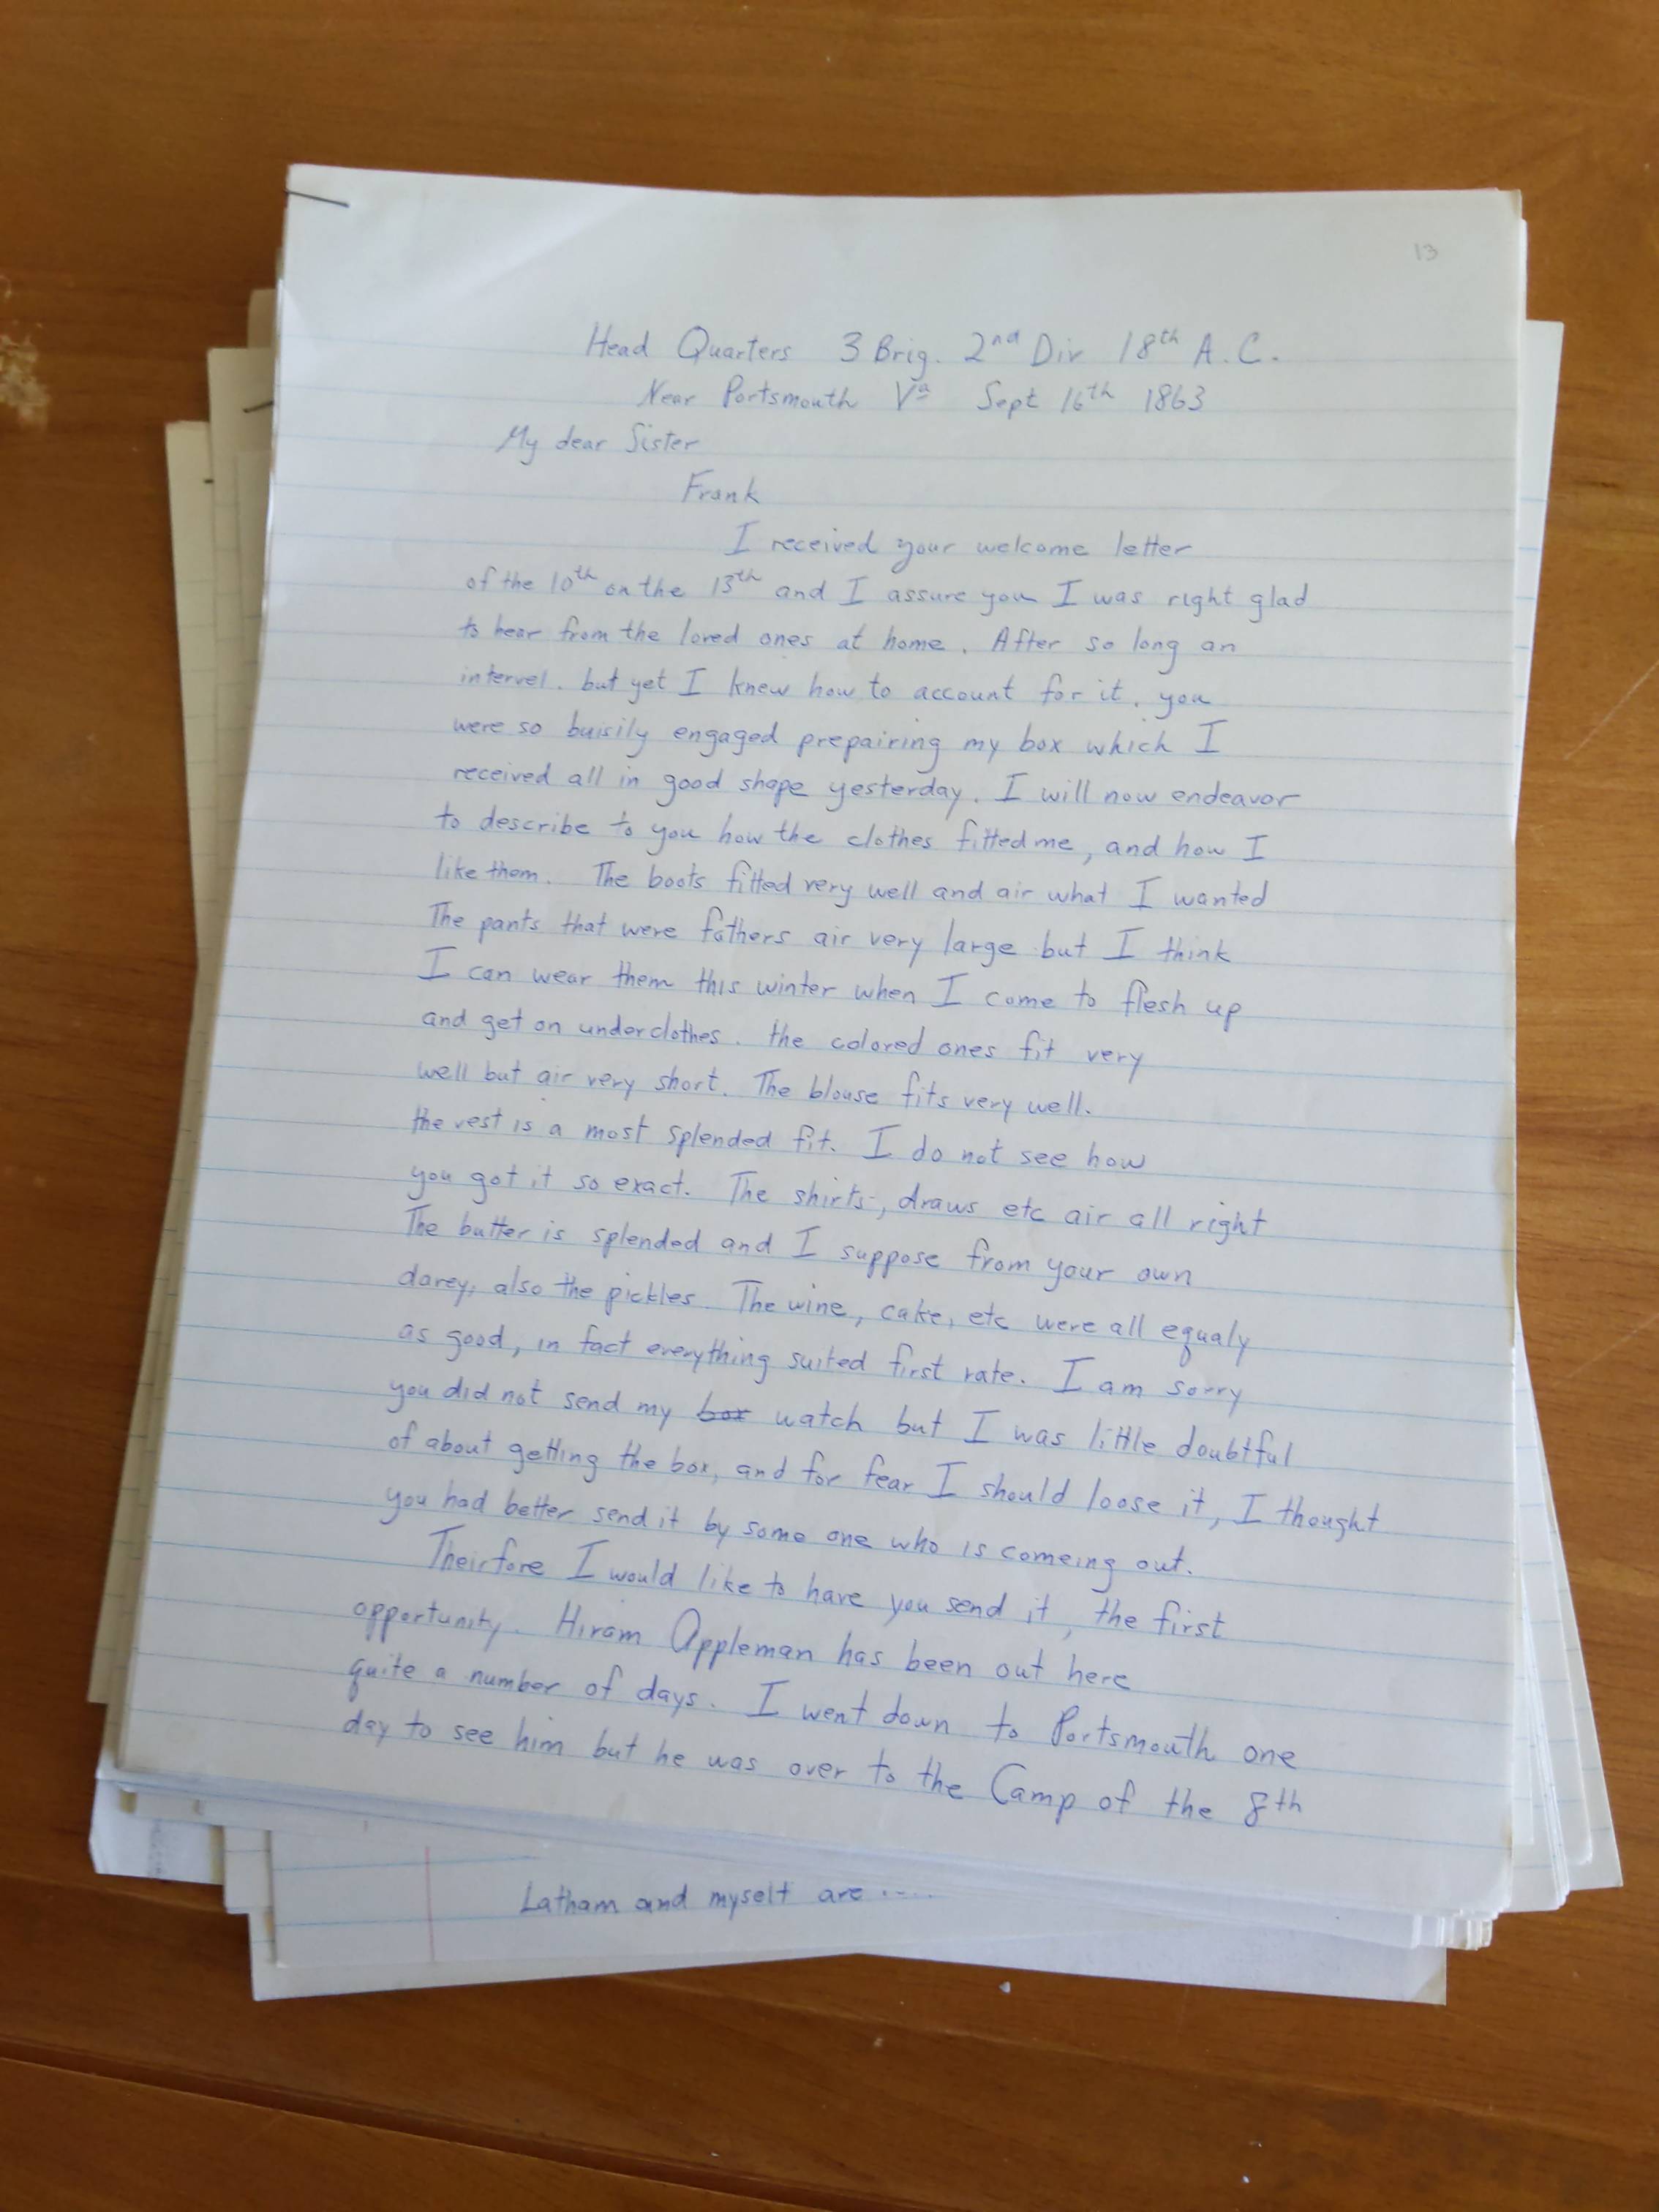 13
Head Quarters 3 Brig. 2nd Div 18th A.C.
Near Portsmouth Va Sept 16th 1863
My dear Sister
Frank
I received your welcome letter
of the 10th on the 13th and I assure you I was right glad
to hear from the loved ones at home. After so long an
intervel. but yet I knew how to account for it. you
were so buisily engaged prepairing my box which I
received all in good shape yesterday. I will now endeavor
to describe to you how the clothes fitted me, and how I
like them. The boots fitted very well and air what I wanted
The pants that were fathers air very large but I think
I can wear them this winter when I come to flesh up
and get on underclothes. the colored ones fit very
well but air very short. The blouse fits very well.
the vest is a most splended fit. I do not see how
you got it so exact. The shirts, draws etc air all right
The butter is splended and I suppose from your own
darey, also the pickles. The wine, cake, etc were all equaly
as good, in fact everything suited first rate. I am sorry
you did not send my box watch but I was little doubtful
of about getting the box, and for fear I should loose it, I thought
you had better send it by some one who is comeing out.
Theirfore I would like to have you send it, the first
opportunity. Hiram Appleman has been out here
quite a number of days. I went down to Portsmouth one
day to see him but he was over to the Camp of the 8th
Latham and myself are ....